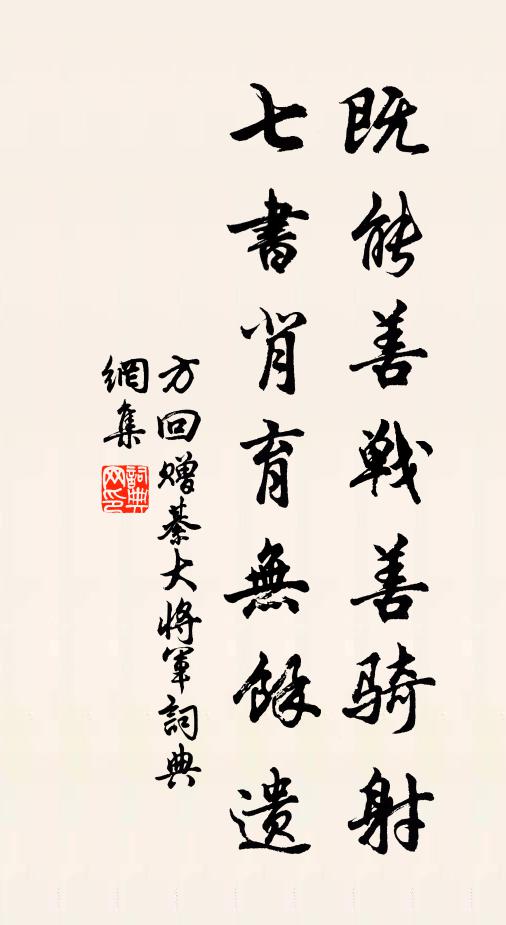 既能善戰善骑射
七書背育無餘遗
方回赠綦大将軍詞典
網集
詞典